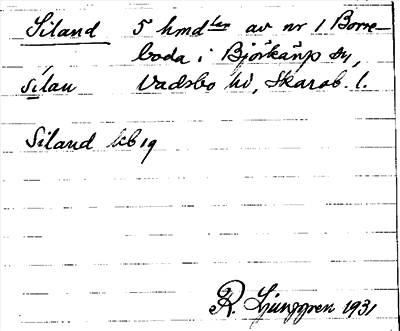 Siland 5 hmd lan av nr 1 Borre-
boda i Björkäng sn,
sílan Vadsbo hd, Skarab. l.
Siland kb 19
R. Ljunggren 1931